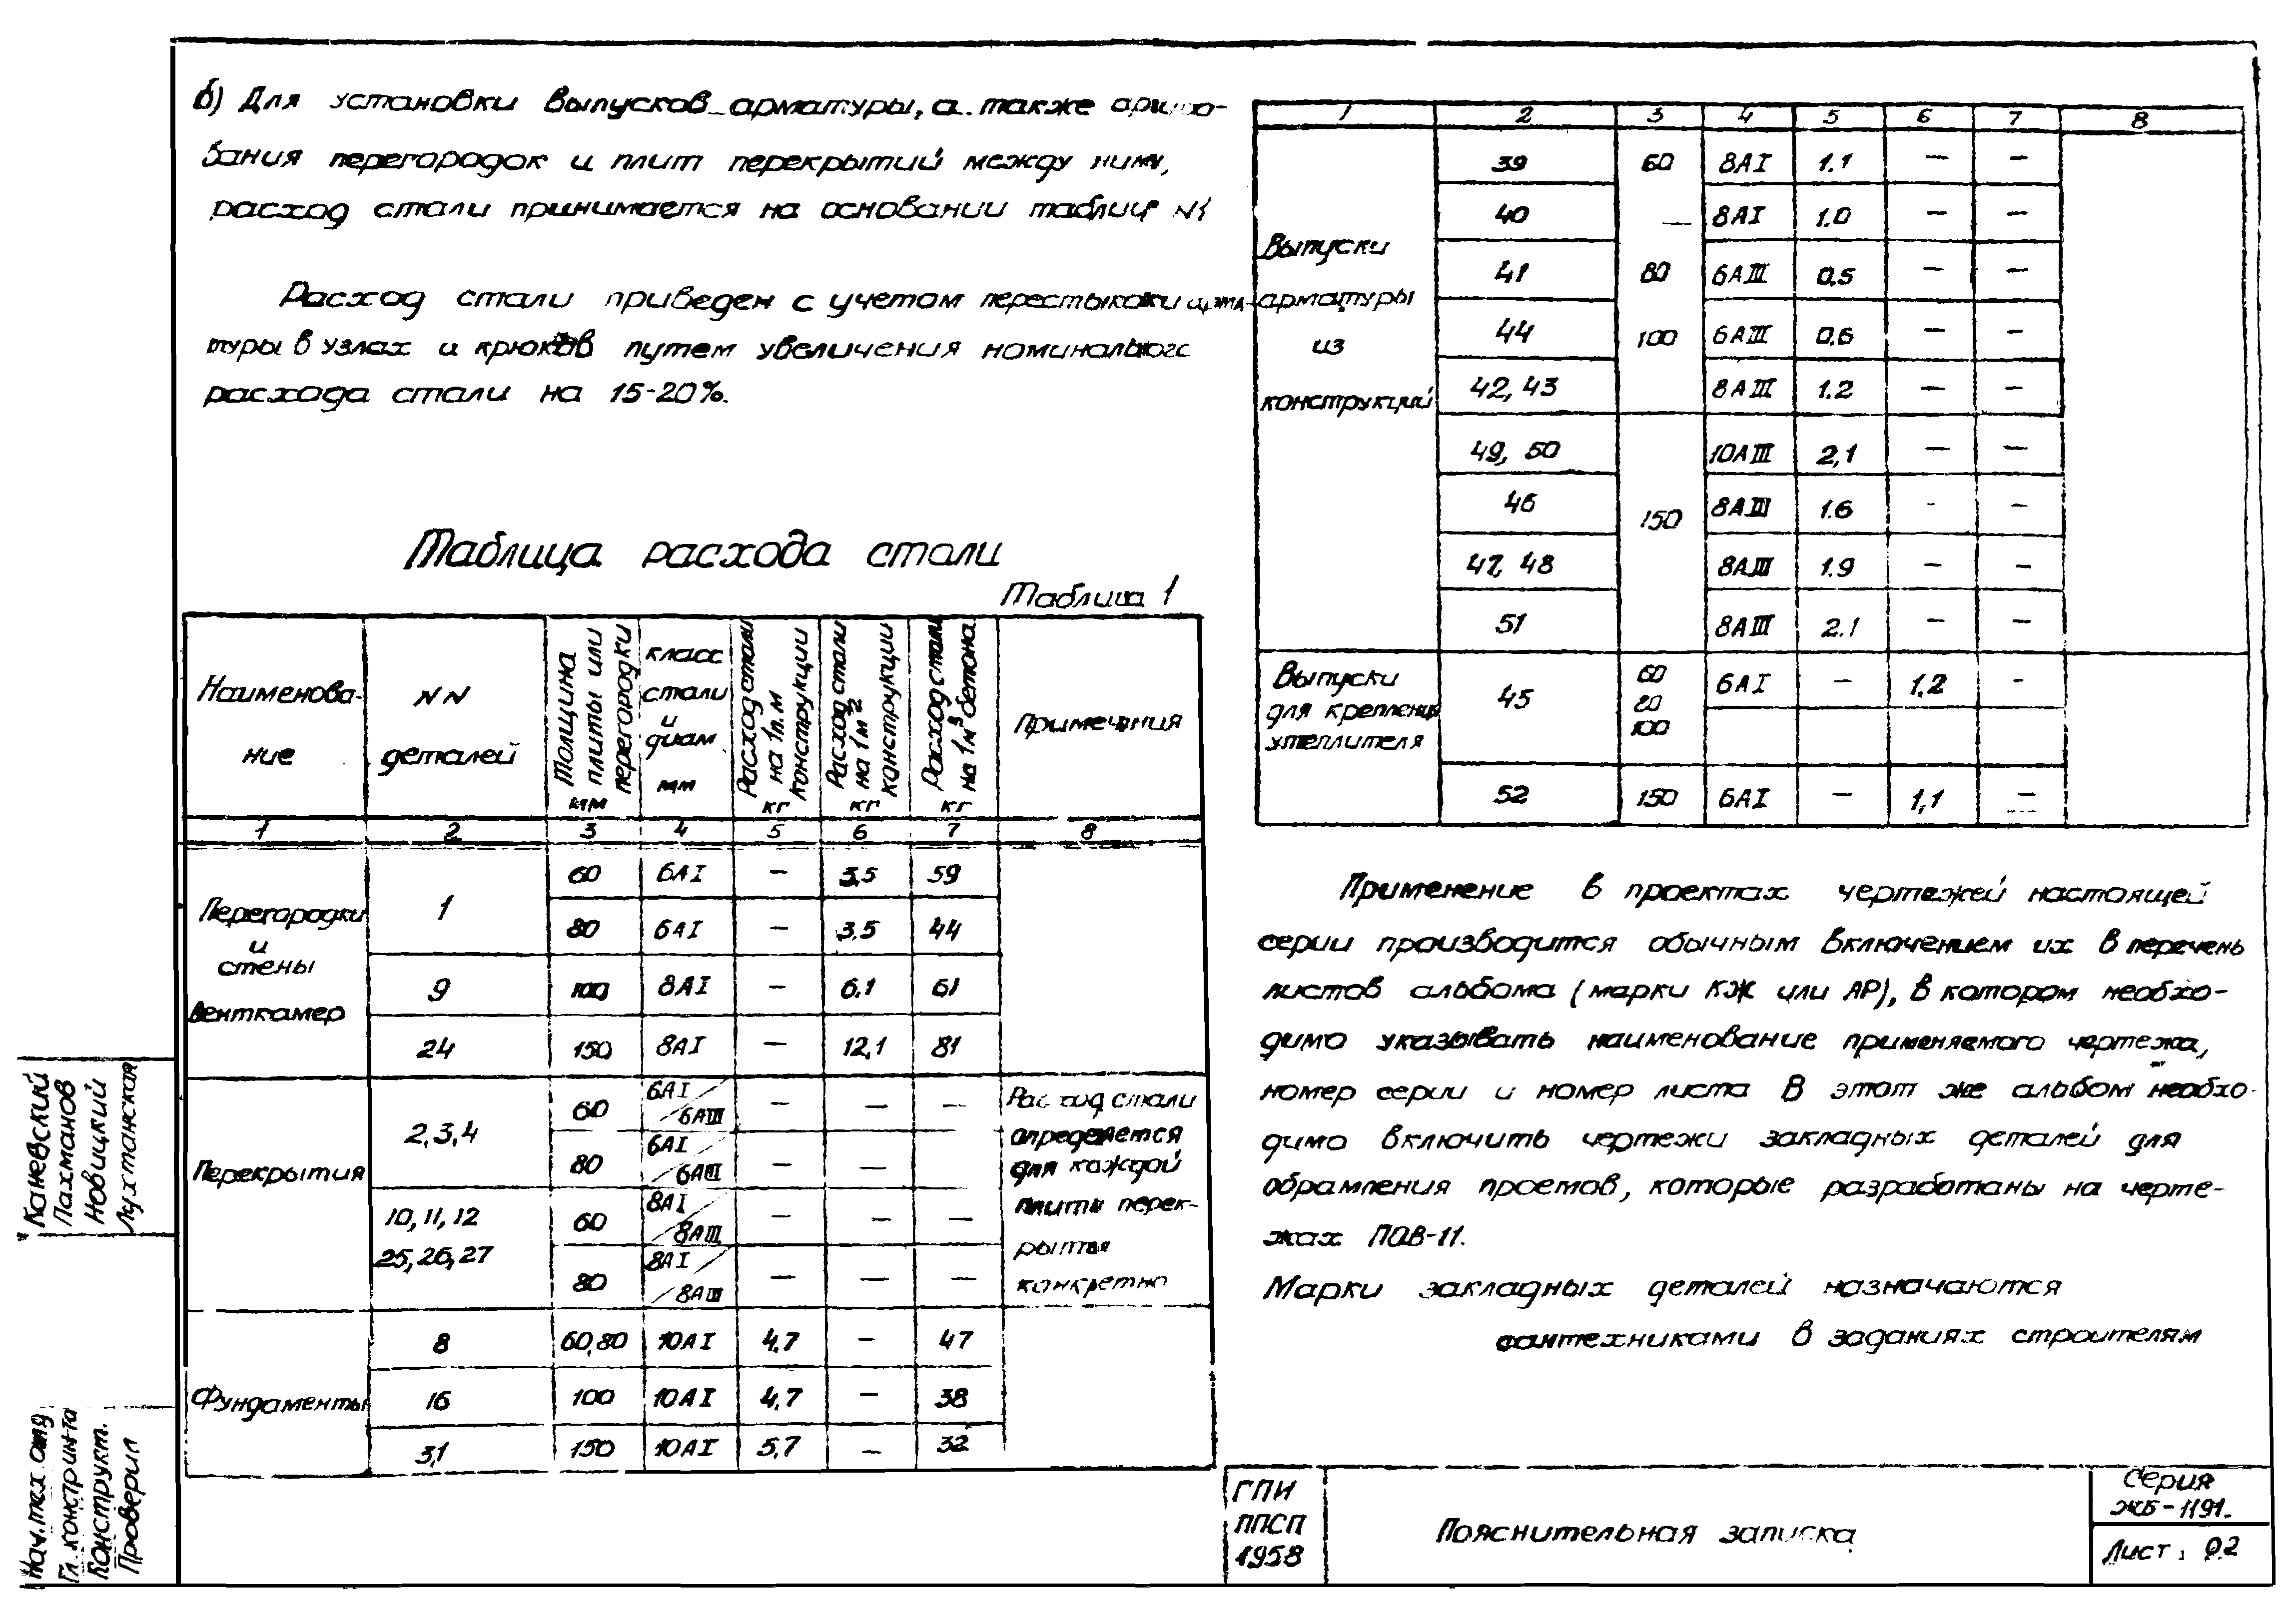 б) Для установки выпусков арматуры, а также армиро-
вания перегородок и плит перекрытий между ними,
расход стали принимается на основании таблиц N1
Расход стали приведен с учетом перестыковки арма-
туры в узлах и крюков путем увеличения номинального
расхода стали на 15-20%.
Таблица расхода стали
Таблица 1
Наименова-ние | NN деталей | Толщина плиты или перегородки мм | класс стали и диам. мм | Расход стали на 1п.м конструкции кг | Расход стали на 1м² конструкции кг | Расход стали на 1м³ бетона кг | Примечания
1 2 3 4 5 6 7 8
Перегородки и стены венткамер
1 60 6АI — 3,5 59
80 6АI — 3,5 44
9 100 8АI — 6,1 61
24 150 8АI — 12,1 81
Перекрытия
2,3,4 60 6АI/6АIII — — —
80 6АI/6АIII — —
10, 11, 12 60 8АI/8АIII — — —
25, 26, 27 80 8АI/8АIII — — —
Расход стали
определяется
для каждой
плиты перек-
рытия
конкретно
Фундаменты
8 60,80 10АI 4,7 — 47
16 100 10АI 4,7 — 38
3,1 150 10АI 5,7 — 32
1 2 3 4 5 6 7 8
Выпуски
арматуры
из
конструкций
39 60 8АI 1.1 — —
40 — 8АI 1.0 — —
41 80 6АIII 0,5 — —
44 100 6АIII 0.6 — —
42, 43 8АIII 1.2 — —
49, 50 10АIII 2,1 — —
46 150 8АIII 1.6 - —
47, 48 8АIII 1.9 — —
51 8АIII 2.1 — —
Выпуски
для крепления
утеплителя
45 60 80 100 6АI — 1.2 -
52 150 6АI — 1,1 —
Применение в проектах чертежей настоящей
серии производится обычным включением их в перечень
листов альбома (марки КЖ или АР), в котором необхо-
димо указывать наименование применяемого чертежа,
номер серии и номер листа В этот же альбом необхо-
димо включить чертежи закладных деталей для
обрамления проемов, которые разработаны на черте-
жах ПОВ-11.
Марки закладных деталей назначаются
сантехниками в заданиях строителям
Каневский
Лахманов
Новицкий
Лухтанская
Нач. тех. отд
Гл. констр ин-та
Конструкт.
Проверил
ГПИ
ППСП
1958
Пояснительная записка
Серия
ЖБ-1191.
Лист. 02